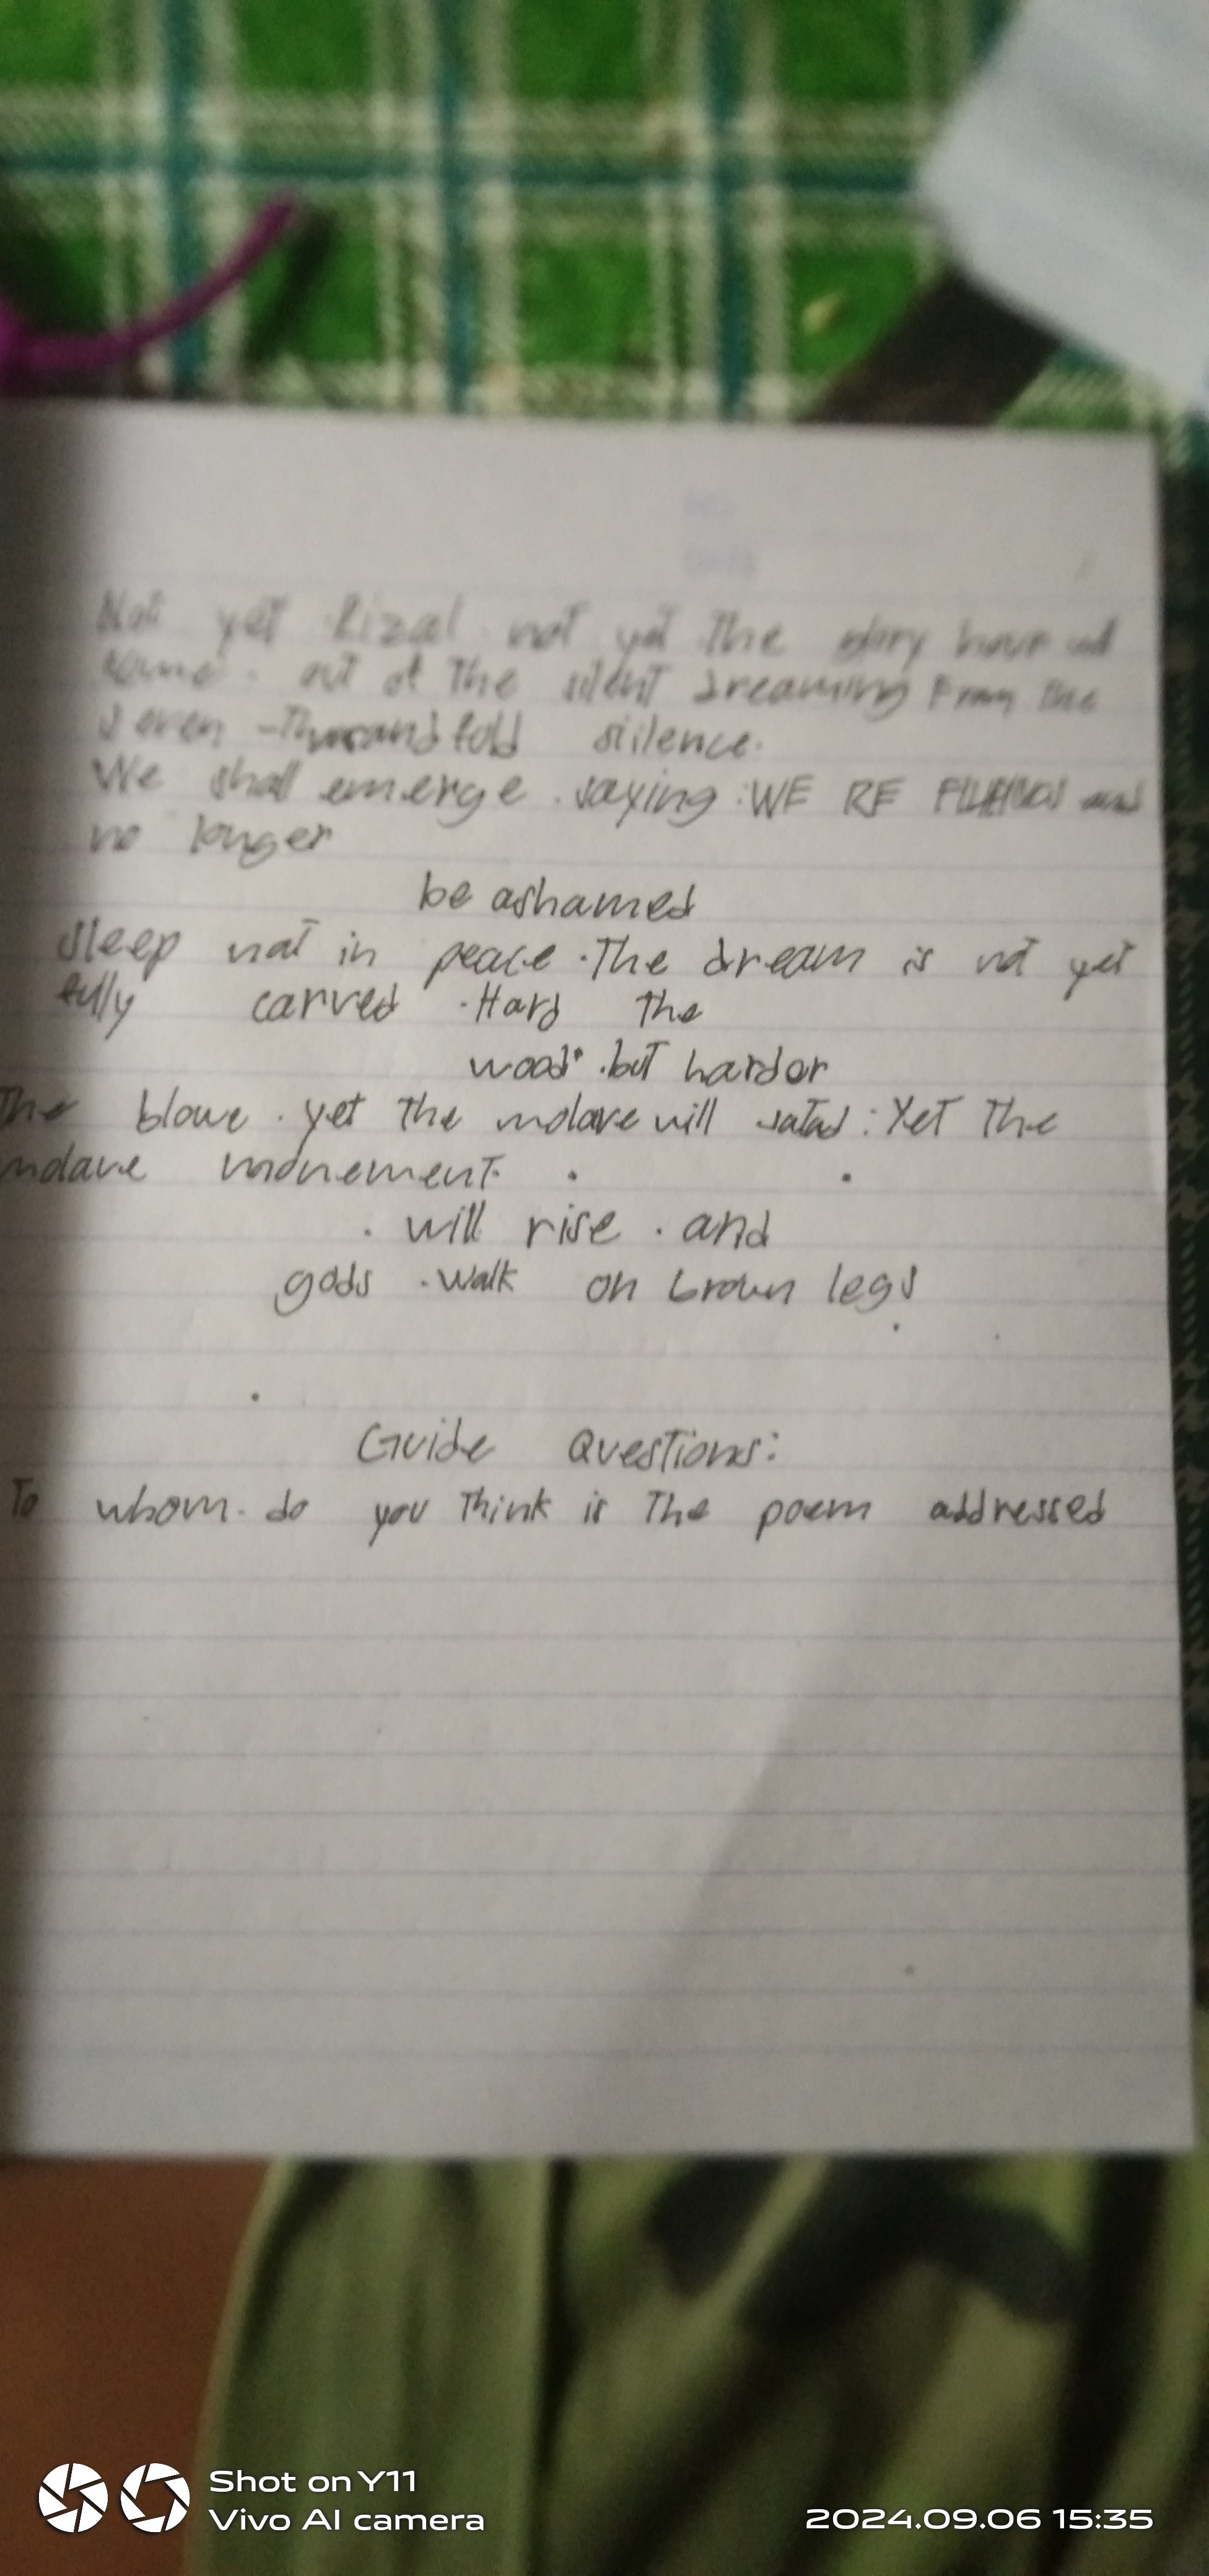 Not yet Rizal not yet The glory hour will
come. out of The silent dreaming From the
seven -Thousandfold silence.
We shall emerge. saying: WE RE FILIPINOS and
no longer
be ashamed
sleep not in peace. The dream is not yet
fully carved. Hard The
wood. but harder
The blowe. yet The molave will : Yet The
molave monement.
. will rise. and
gods. Walk on brown legs
Guide Questions:
To whom. do you Think is The poem addressed
Shot on Y11
Vivo AI camera
2024.09.06 15:35